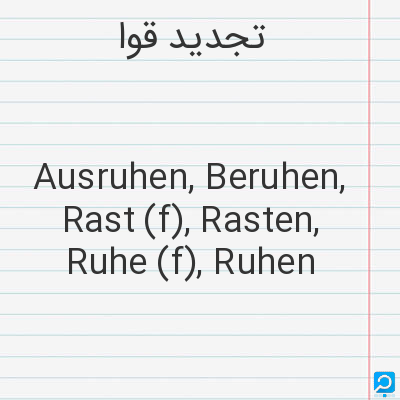 تجدید قوا
Ausruhen, Beruhen,
Rast (f), Rasten,
Ruhe (f), Ruhen